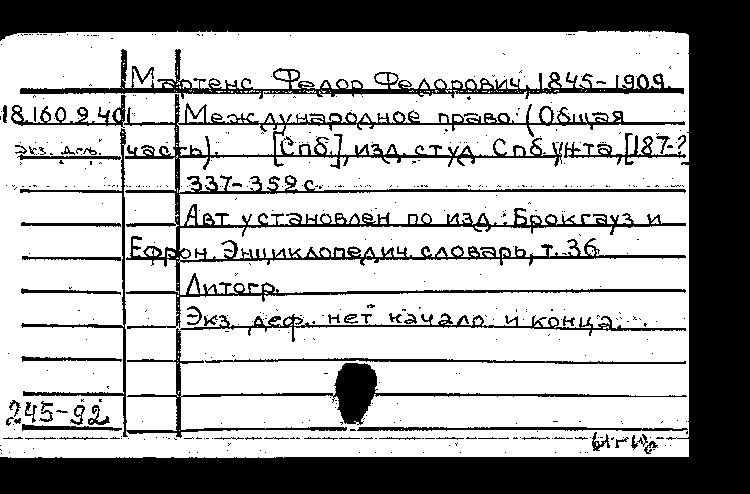 Мартенс, Федор Федорович, 1845-1909.
18.160.9.401 Международное право. (Общая
Экз. деф. часть). [Спб.], изд. студ. Спб. ун-та, [187-?]
337-352 с.
Авт. установлен по изд.: Брокгауз и
Ефрон. Энциклопедич. словарь, т. 36
Литогр.
Экз. деф.. нет начала и конца.
245-92